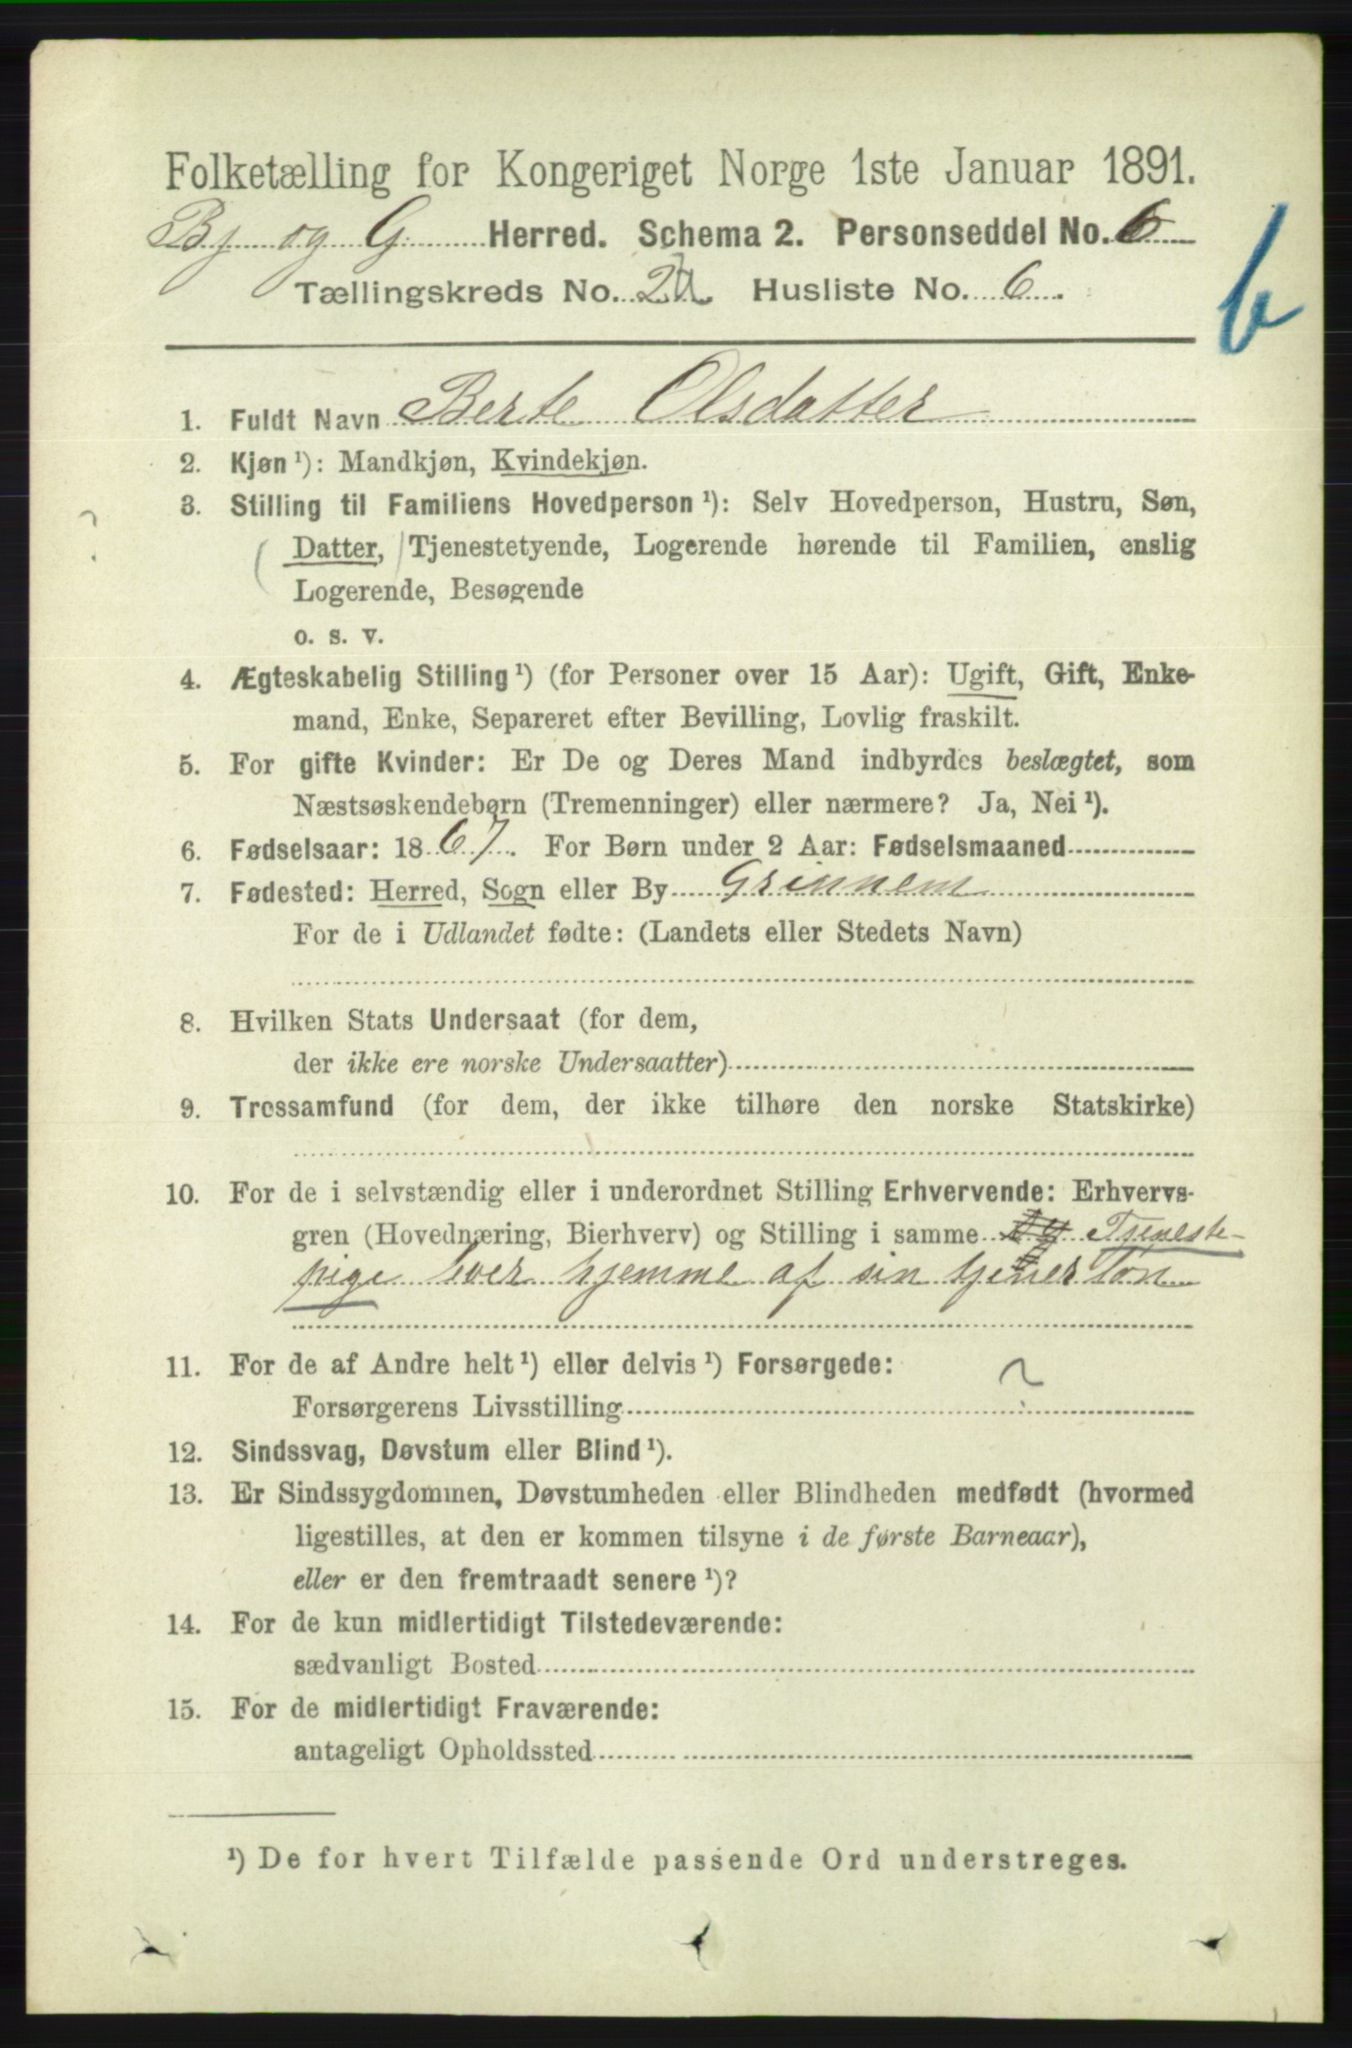 Folketælling for Kongeriget Norge 1ste Januar 1891.
Bj og G Herred. Schema 2. Personseddel No. 6
Tællingskreds No. 2a Husliste No. 6.
b
1. Fuldt Navn Berte Olsdatter
2. Kjøn ¹): Mandkjøn, Kvindekjøn.
3. Stilling til Familiens Hovedperson ¹): Selv Hovedperson, Hustru, Søn,
? (Datter, / Tjenestetyende, Logerende hørende til Familien, enslig
Logerende, Besøgende
o. s. v.
4. Ægteskabelig Stilling ¹) (for Personer over 15 Aar): Ugift, Gift, Enke-
mand, Enke, Separeret efter Bevilling, Lovlig fraskilt.
5. For gifte Kvinder: Er De og Deres Mand indbyrdes beslægtet, som
Næstsøskendebørn (Tremenninger) eller nærmere? Ja, Nei ¹).
6. Fødselsaar: 1867. For Børn under 2 Aar: Fødselsmaaned
7. Fødested: Herred, Sogn eller By Grinnem
For de i Udlandet fødte: (Landets eller Stedets Navn)
8. Hvilken Stats Undersaat (for dem,
der ikke ere norske Undersaatter)
9. Trossamfund (for dem, der ikke tilhøre den norske Statskirke)
10. For de i selvstændig eller i underordnet Stilling Erhvervende: Erhvervs-
gren (Hovednæring, Bierhverv) og Stilling i samme Tjeneste-
pige lever hjemme af sin tjener løn
11. For de af Andre helt ¹) eller delvis ¹) Forsørgede:
Forsørgerens Livsstilling ?
12. Sindssvag, Døvstum eller Blind ¹).
13. Er Sindssygdommen, Døvstumheden eller Blindheden medfødt (hvormed
ligestilles, at den er kommen tilsyne i de første Barneaar),
eller er den fremtraadt senere ¹)?
14. For de kun midlertidigt Tilstedeværende:
sædvanligt Bosted
15. For de midlertidigt Fraværende:
antageligt Opholdssted
¹) De for hvert Tilfælde passende Ord understreges.